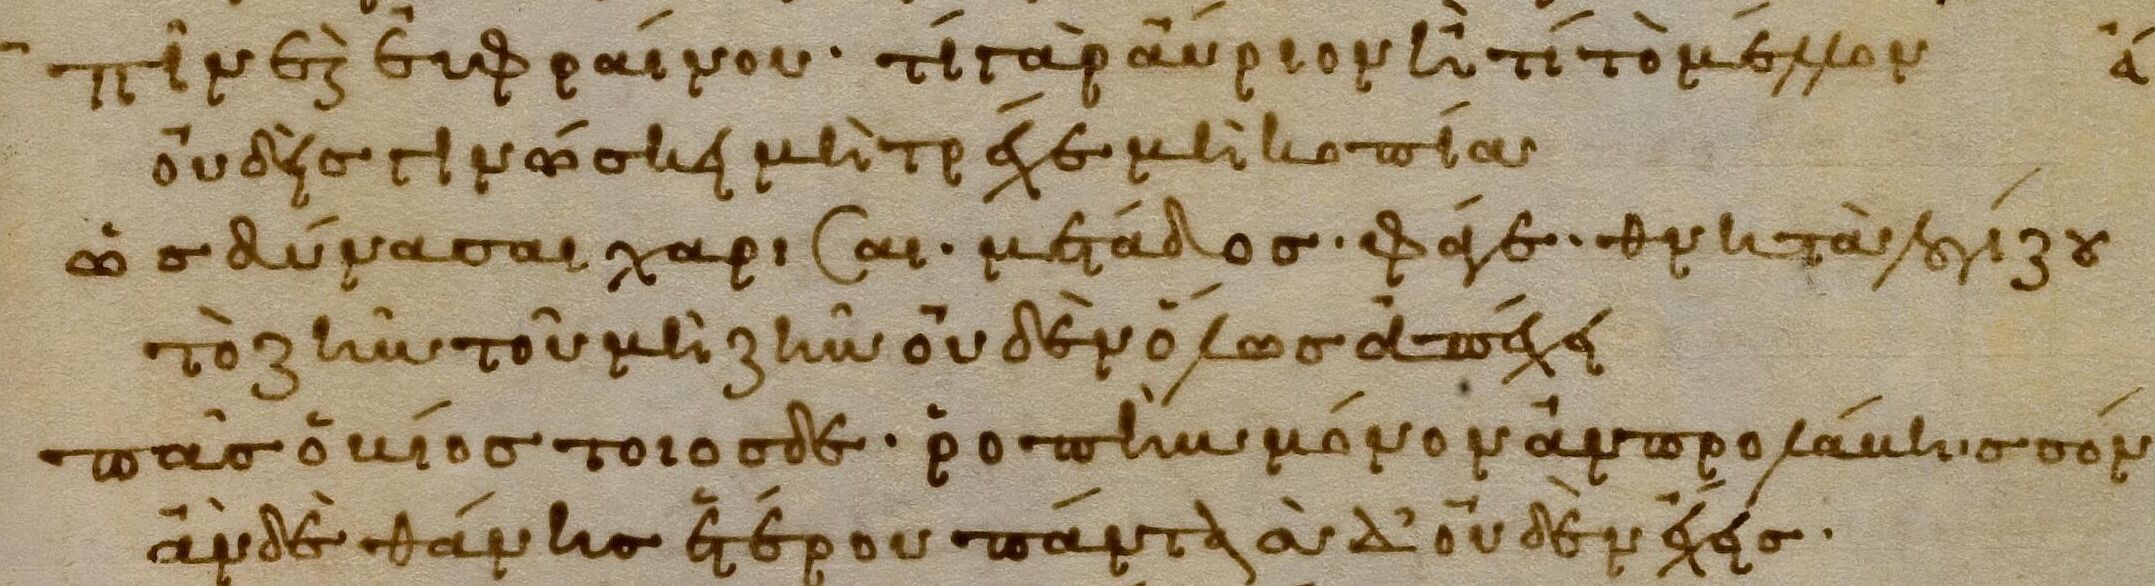 πῖνε καὶ εὐφραίνου· τί γὰρ αὔριον ἢ τί τὸ μέλλον
οὐδεὶς γινώσκει μὴ τρέχε μὴ κοπία
ὡς δύνασαι χάρισαι· μετάδος· φάγε· θνητὰ λογίζου
τὸ ζῆν τοῦ μὴ ζῆν οὐδὲν ὅλως ἀπέχει
πᾶς ὁ βίος τοιόσδε· ῥοπὴ μόνον ἂν προλάβῃς σόν
ἂν δὲ θάνῃς ἑτέρου πάντα σὺ δ' οὐδὲν ἔχεις·